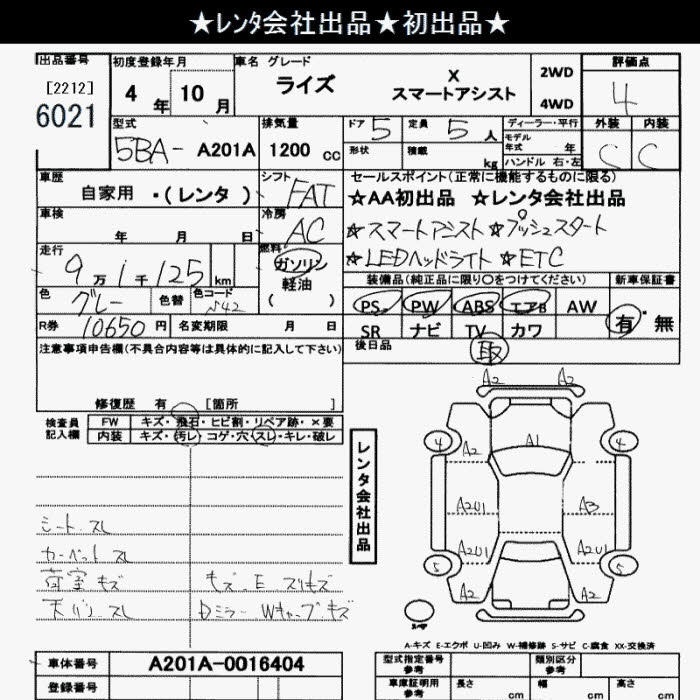 ★レンタ会社出品★初出品★
出品番号 初度登録年月 車名 グレード 評価点
[2212] 4年 10月 ライズ X スマートアシスト 2WD 4WD 4
6021
型式 排気量 ドア 5 定員 5人 ディーラー・平行 外装 内装
5BA- A201A 1200 cc 形状 積載 kg モデル年式 年 C C
ハンドル 右・左
車歴 シフト FAT セールスポイント(正常に機能するものに限る)
自家用 ・(レンタ) ★AA初出品 ★レンタ会社出品
車検 年 月 日 冷房 AC ☆スマートアシスト☆プッシュスタート
走行 9万1千125 km 燃料 ガソリン 軽油 ( ) ☆LEDヘッドライト ☆ETC
装備品(純正品に限り○をつけてください) 新車保証書
色 グレー 色替 色コード PS PW ABS エアB AW 有・無
R券 10650円 名変期限 月 日 SR ナビ TV カワ
注意事項申告欄(不具合内容等は具体的に記入して下さい) 後日品 取
修復歴 有 [箇所 ]
検査員記入欄 FW キズ・飛石・ヒビ割・リペア跡・×要
内装 キズ・汚レ・コゲ・穴・スレ・キレ・破レ
レンタ会社出品
A2 A2
4 A2 A1 4
A2U1 A3
A2U1 A2U1
5 A2 A2 5
シート スレ
カーペット スレ
荷室 キズ
天バリ スレ
A-キズ E-エクボ U-凹み W-補修跡 S-サビ C-腐食 XX-交換済
車体番号 A201A-0016404 型式指定番号 参考 類別区分 参考
登録番号 車庫証明用 参考 長さ cm 幅 cm 高さ cm